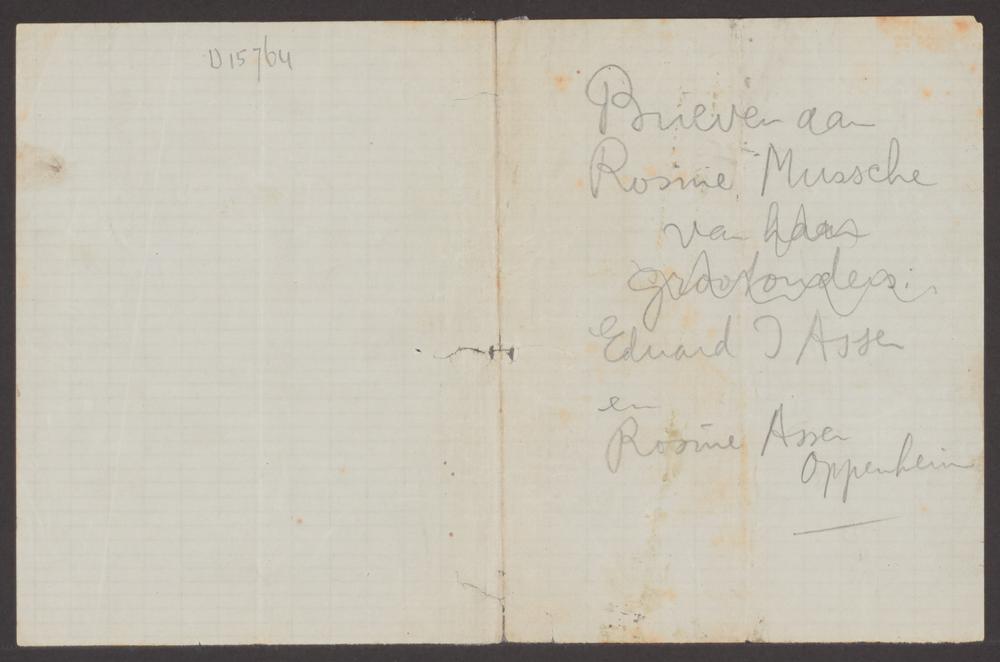 D15764
Brieven aan
Rosine Mussche
van haar
grootouders:
Eduard I Asser
en
Rosine Asser
Oppenheim